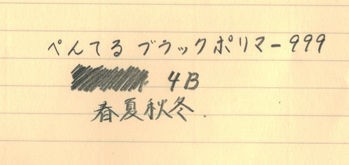 ぺんてる ブラックポリマー999
4B
春夏秋冬.